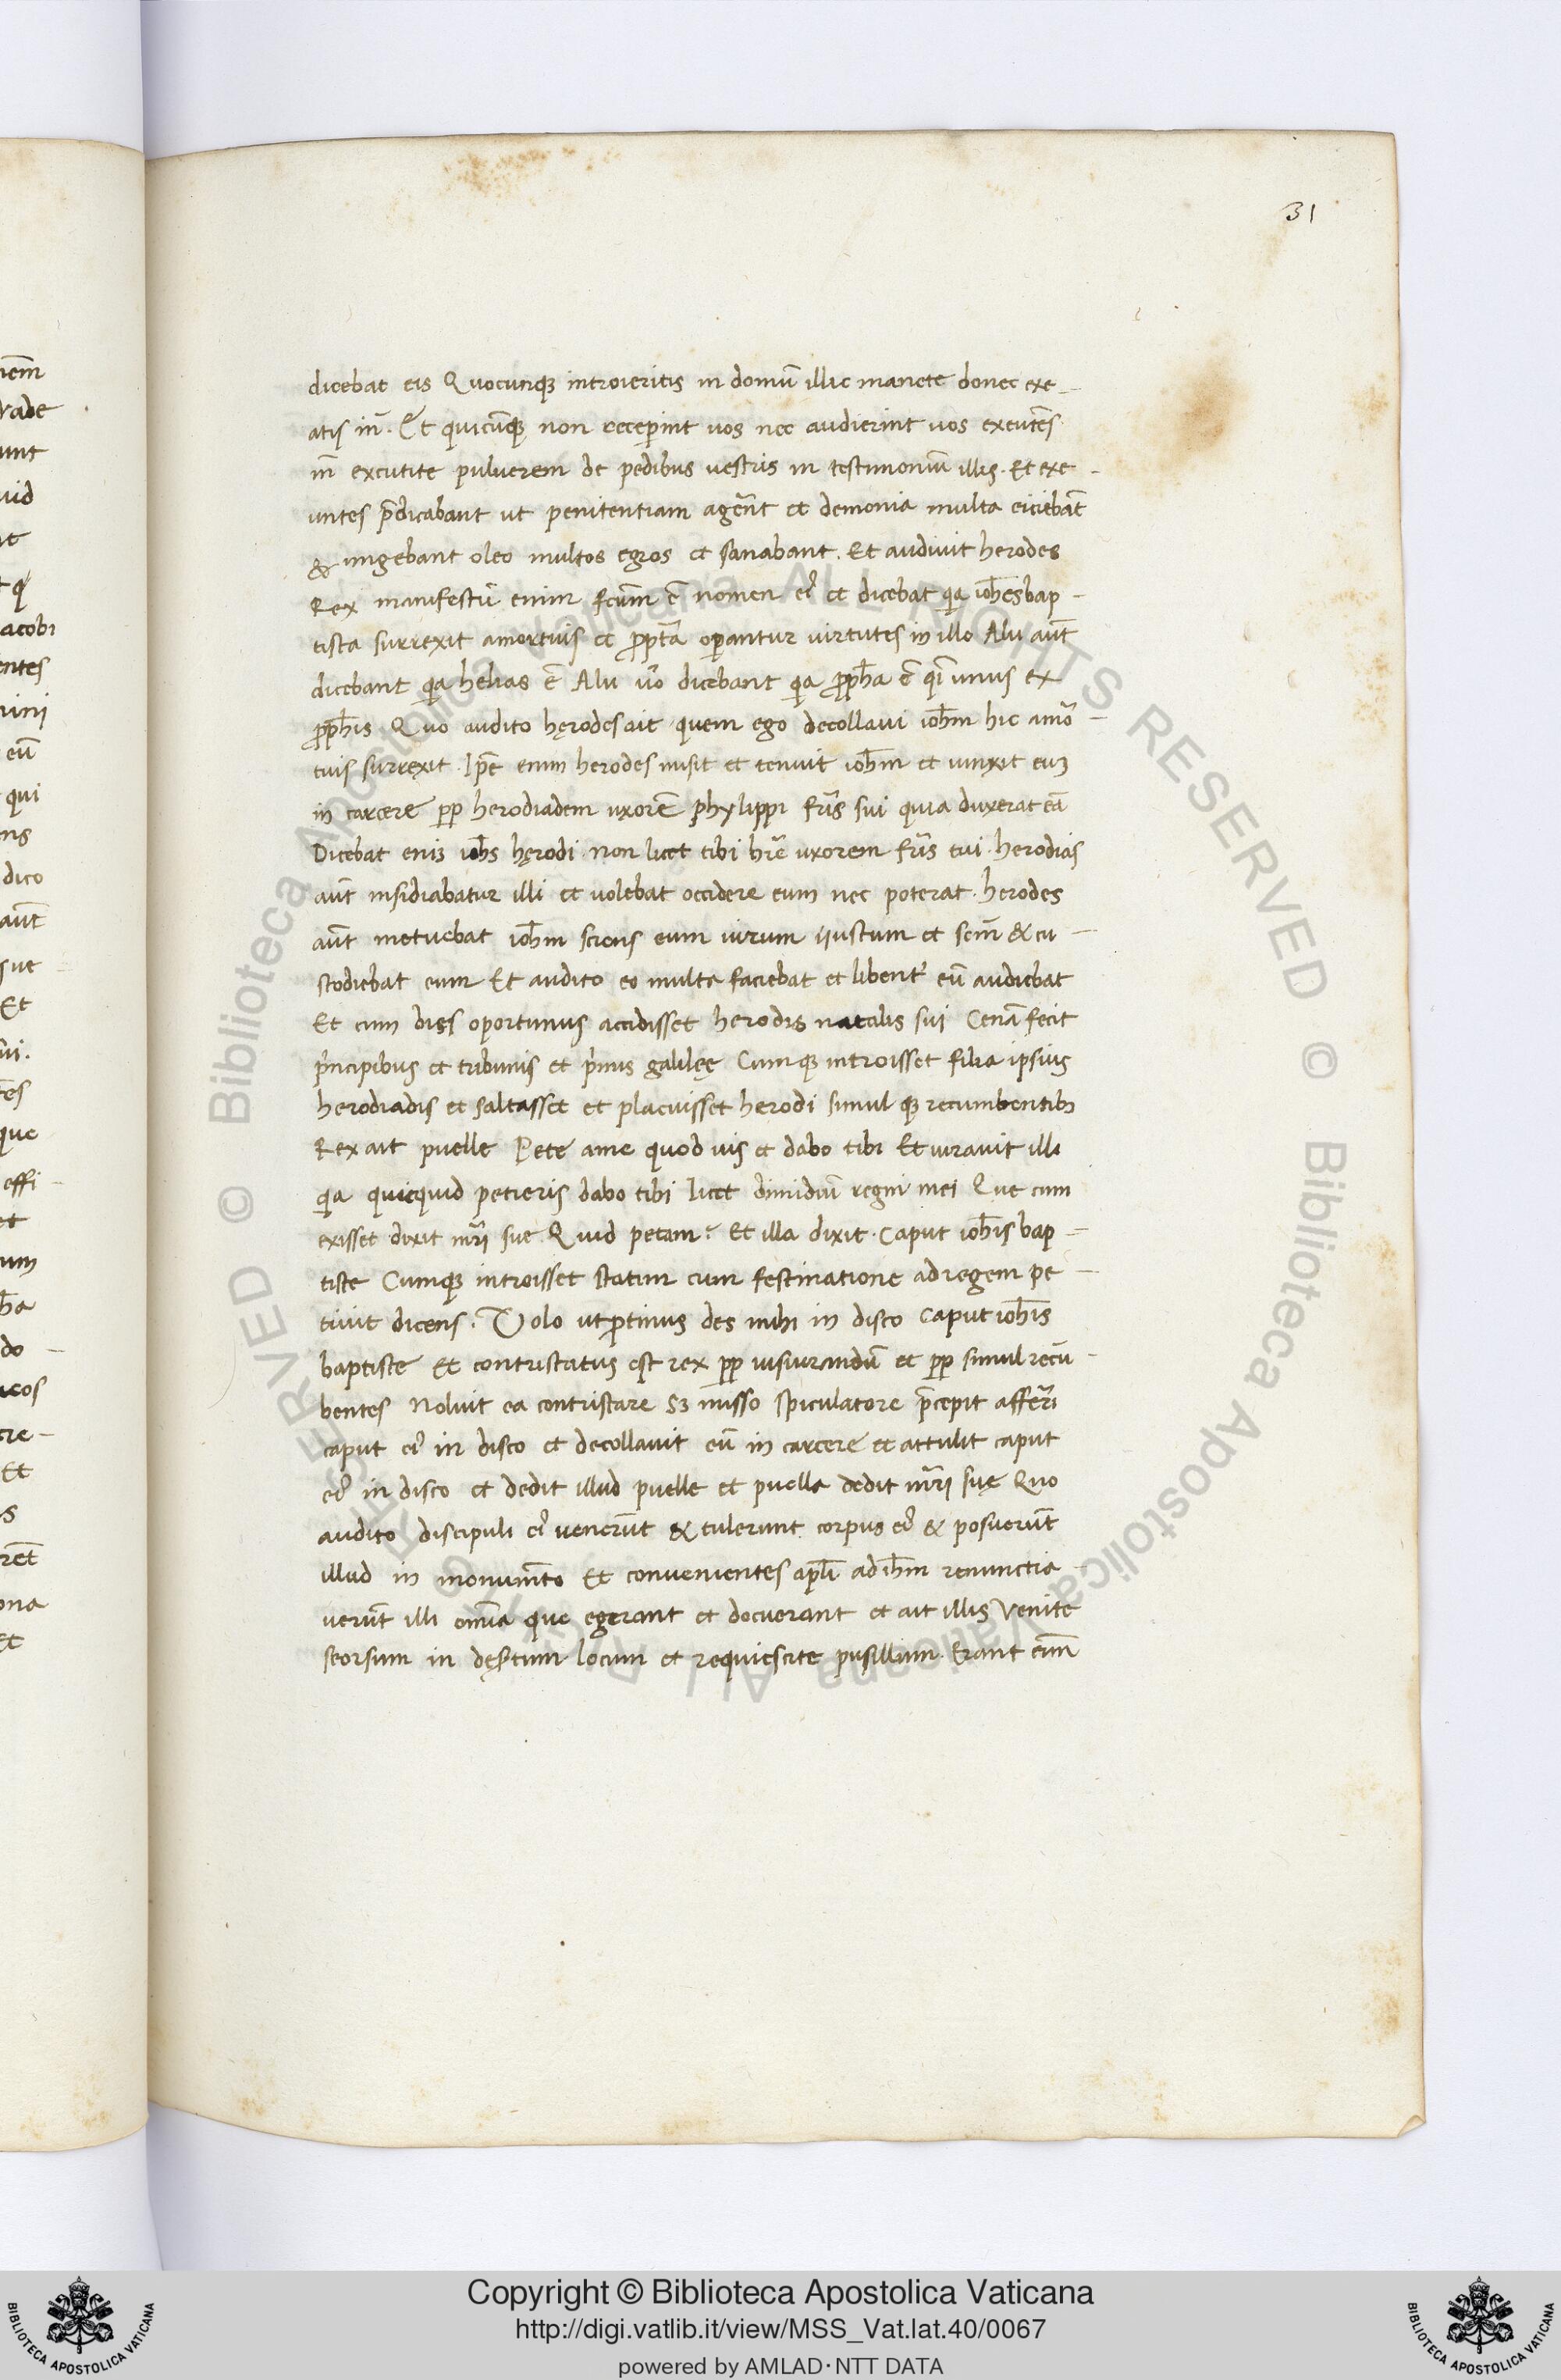 31
dicebat eis Quocunqꝫ introieritis in domū illic manete donec exe-
atis iñ. Et quicūqꝫ non receꝑint uos nec audierint uos exeuñtes
iñ excutite puluerem de pedibus uestris in testimoniū illis. Et exe-
untes p̃dicabant ut penitentiam ageñt et demonia multa eiciebāt
& ungebant oleo multos egros et sanabant. Et audiuit herodes
Rex manifestū enim fc̃um ē nomen eiꝰ et dicebat q̃a ioh̃es bap-
tista surrexit amortuis et ꝓpt̃a oꝑantur uirtutes in illo Alii aut̃
dicebant q̃a helias ē Alii u̾o dicebant q̃a ꝓph̃a ē q̃i unus ex
ꝓph̃is Quo audito hęrodes ait quem ego decollaui ioh̃m hic amor-
tuis surrexit. Ip̃e enim herodes misit et tenuit ioh̃m et uinxit euꝫ
in carcere ꝓp herodiadem uxorē phylippi fr̃is sui quia duxerat eā
Dicebat eniꝫ ioh̃s hęrodi non licet tibi hr̃e uxorem fr̃is tui. herodias
aut̃ insidiabatur illi et uolebat occidere eum nec poterat. herodes
aut̃ metuebat ioh̃m sciens eum uirum iustum et sc̃m & cu-
stodiebat eum Et audito eo multa faciebat et libent̾ eū audiebat
Et cum dies oportunus accidisset herodis natalis sui Cenā fecit
p̾ncipibus et tribunis et p̾mis galilęę Cumqꝫ introisset filia ipsius
herodiadis et saltasset et placuisset herodi simul qꝫ recumbentibꝫ
Rex ait puelle Pete ame quod uis et dabo tibi Et iurauit illi
q̃a quicquid petieris dabo tibi licet dimidiū regni mei Que cum
exisset dixit mr̃i sue Quid petam? Et illa dixit. Caput ioh̃is bap-
tiste Cumqꝫ introisset statim cum festinatione ad regem pe-
tiuit dicens. Volo ut ꝓtinus des mihi in disco caput ioh̃is
baptiste Et contristatus est rex ꝓp iusiurandū et ꝓp simul recū-
bentes Noluit ea contristare Sꝫ misso spiculatore p̃cepit afferr̃i
caput eiꝰ in disco et decollauit eū in carcere et attulit caput
eiꝰ in disco et dedit illud puelle et puella dedit mr̃i suę Quo
audito discipuli eiꝰ uenerūt & tulerunt corpus eiꝰ & posuerūt
illud in monum̃to Et conuenientes apl̃i ad ih̃m renunctia
uerūt illi om̃ia que egerant et docuerant et ait illis Venite
seorsum in dęs̃tum locum et requiescite pusillum. Erant eim̃
Copyright © Biblioteca Apostolica Vaticana
http://digi.vatlib.it/view/MSS_Vat.lat.40/0067
powered by AMLAD·NTT DATA